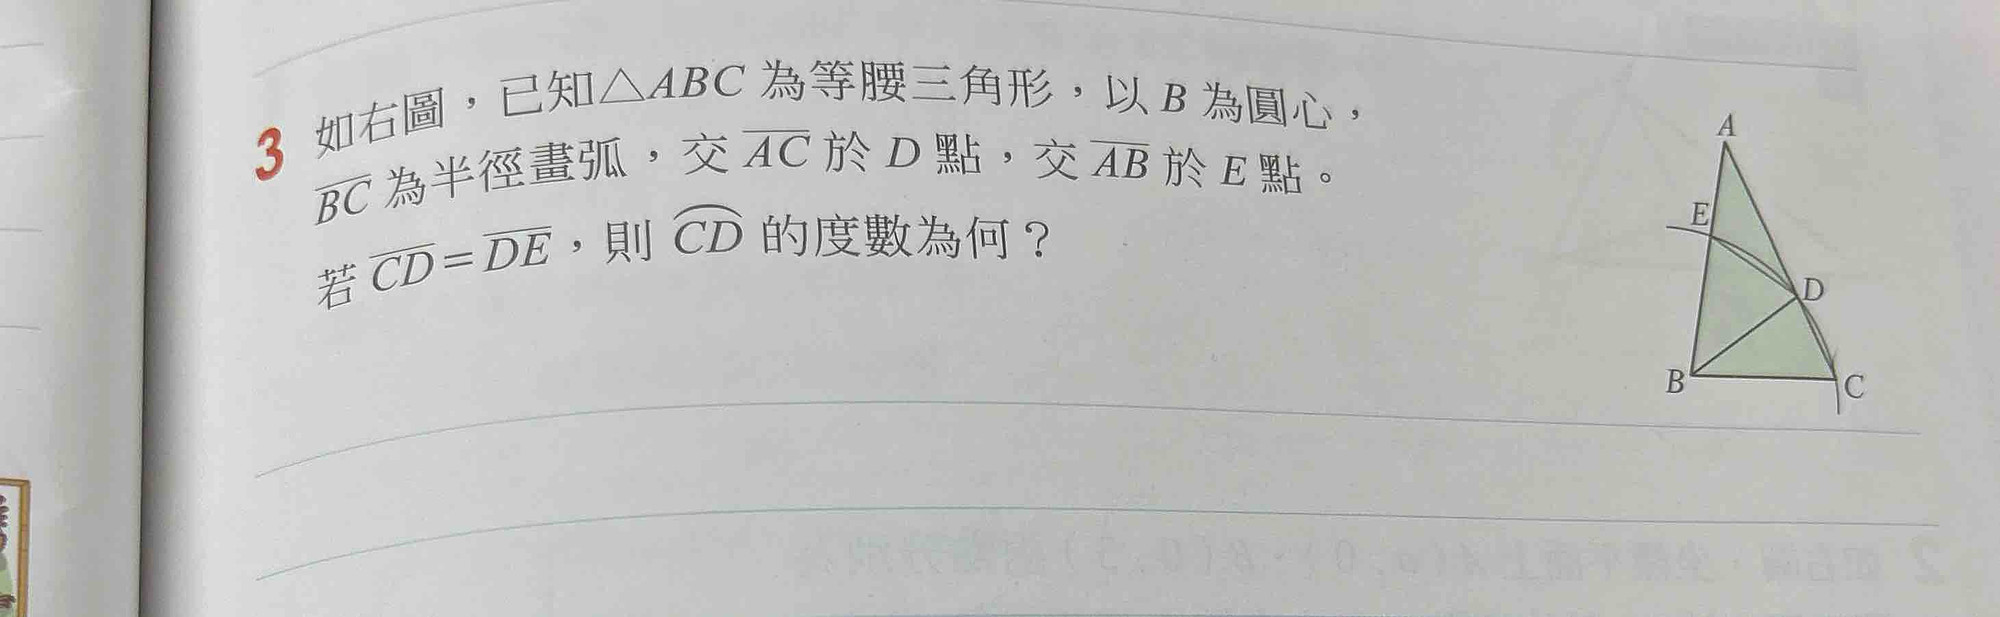 3 如右圖，已知△ABC 為等腰三角形，以 B 為圓心，
BC 為半徑畫弧，交 AC 於 D 點，交 AB 於 E 點。
若 CD＝DE，則 CD 的度數為何？
A
E
D
B
C